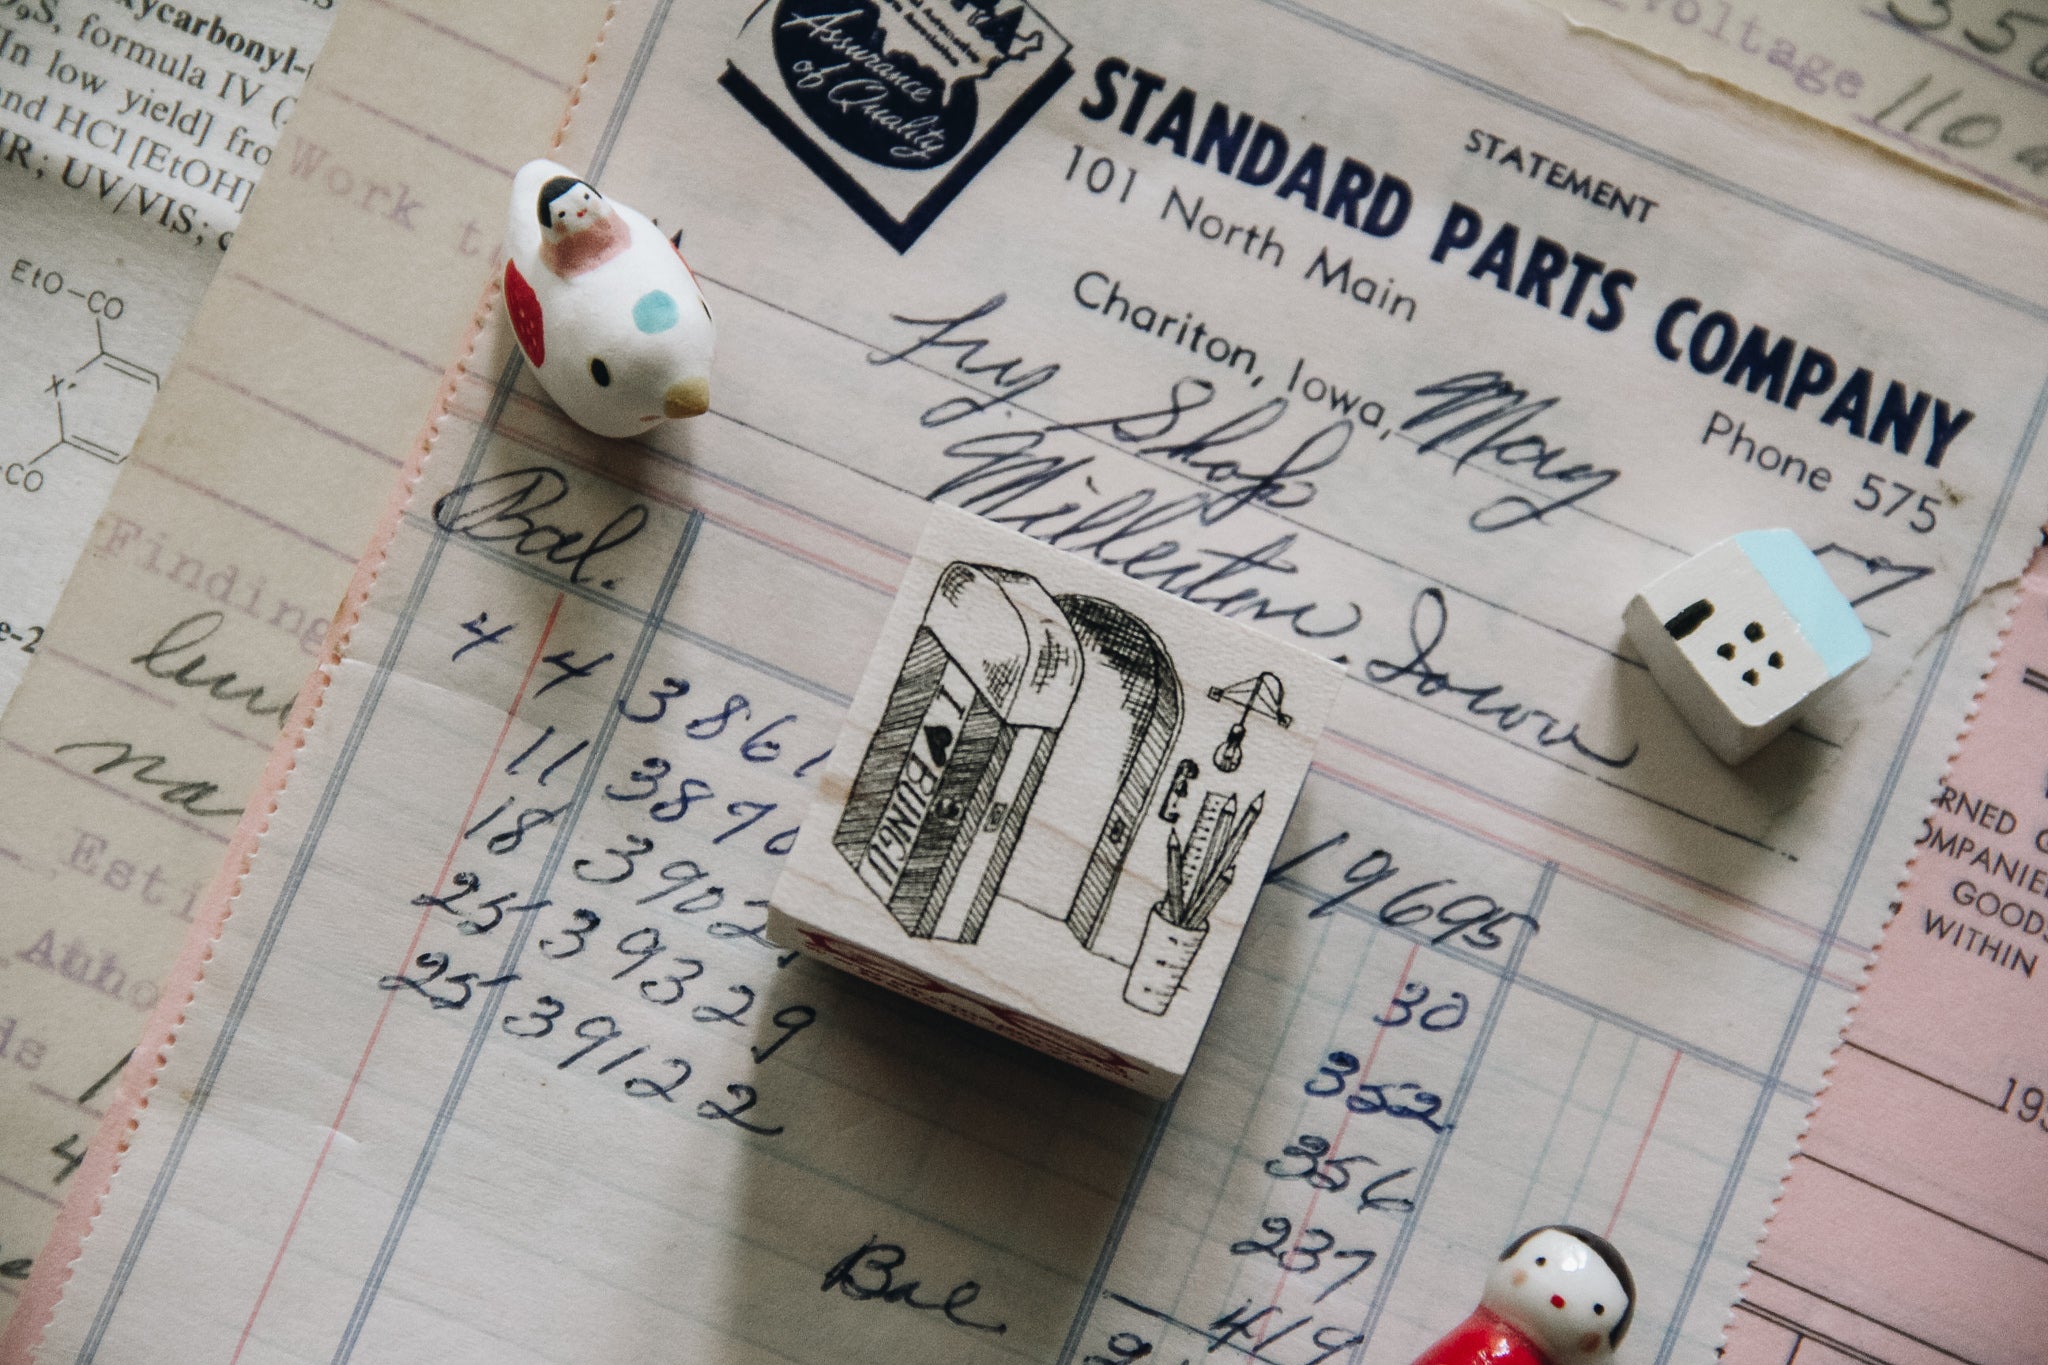 xycarbonyl-
S, formula IV (
In low yield] fro
nd HCl [EtOH]
IR; UV/VIS;
EtO-CO
X
-CO
e-2
Work
Finding
na
Esti
Autho
ds
4
voltage 110
350
Assurance
of Quality
STATEMENT
STANDARD PARTS COMPANY
101 North Main
Phone 575
Chariton, Iowa, May
57
Fry Shop
Millerton, Iowa
Bal. 19695
4 4 3861 30
11 3870 352
18 3902 356
25 39329 237
25 39122 419
Bal
I ♥ BUNGU
RNED
OMPANIE
GOODS
WITHIN
195